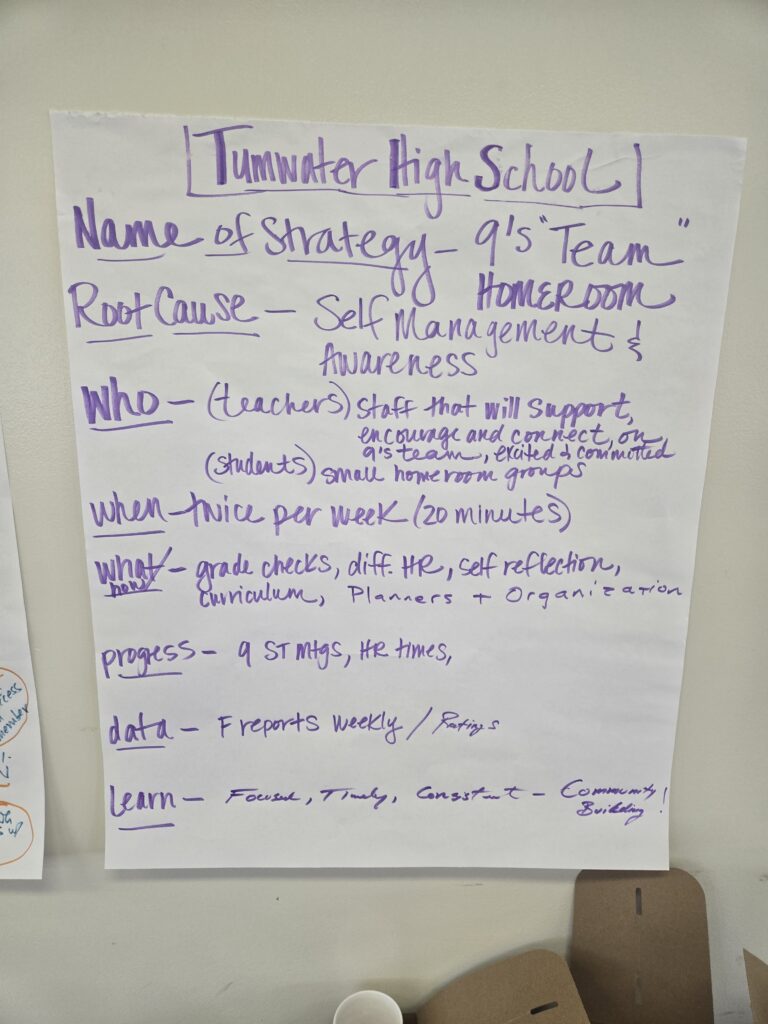 Tumwater High School
Name of Strategy - 9's "Team"
HOMEROOM
Root Cause - Self Management &
Awareness
Who - (teachers) Staff that will support,
encourage and connect, on
9's team, excited & committed
(students) small homeroom groups
when - twice per week (20 minutes)
what/ - grade checks, diff. HR, self reflection,
how curriculum, Planners + Organization
progress - 9 ST Mtgs, HR times,
data - F reports weekly / Ratings
Learn - Focused, Timely, Consistent - Community
Building!
member